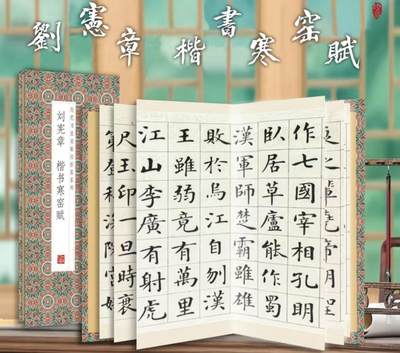 劉憲章楷書寒窑賦
刘宪章 楷书寒窑赋
作七國宰相孔明
臥居草廬能作蜀
漢軍師楚霸雖雄
敗於烏江自刎漢
王雖弱竟有萬里
江山李廣有射虎
尺玉印一旦時衰